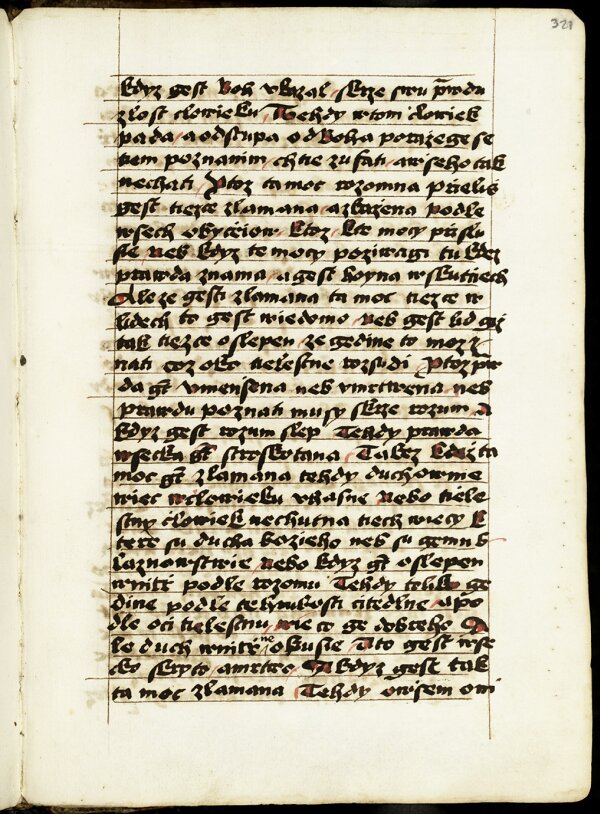 321
kdyz gest boh vkazal skrze swu prwdu
zlost clowieku Tehdy w tom clowiek
pada a odstupa od boha potazege se
tiem poznanim chtie zufati a wseho tak
nechati Ptoz ta moc rozomna prielis
gest tiezce zlamana a zkazena podle
wsech obyceiow ktoz kte mocy
sie neb kdyz te mocy poziwagi tu kdez
prawda znama a gest hoyna w skutciech
Ale ze gesti zlamana ta moc tiezce w
lidech to gest wiedomo neb gest lid giz
tak tiezce oslepen ze gedine to moz z
nati coz oko tielestne rozsudi Ptoz pra
da gt vmensena neb vmrtwena neb
prawdu poznati musy skrze rozum A
kdyz gest rozum slep Tehdy prawda
wsecka gt stroskotana Takez kdez ta
moc gt zlamana tehdy duchownie
wiec w clowieku vhasne Nebo tiele
stny clowiek nechutna tiech wiecy k
tere su ducha bozieho neb su gemu b
laznowstwie nebo kdyz gt oslepen
wnitr podle rozomu Tehdy toliko ge
dine podle tehlybosti citedlne a po
dle oci tielestnu wie co ge dobreho A
le duch wnitrne okusie A to gest wse
cko skryto a mrtwo A kdyz gest tak
ta moc zlamana Tehdy owsem oni